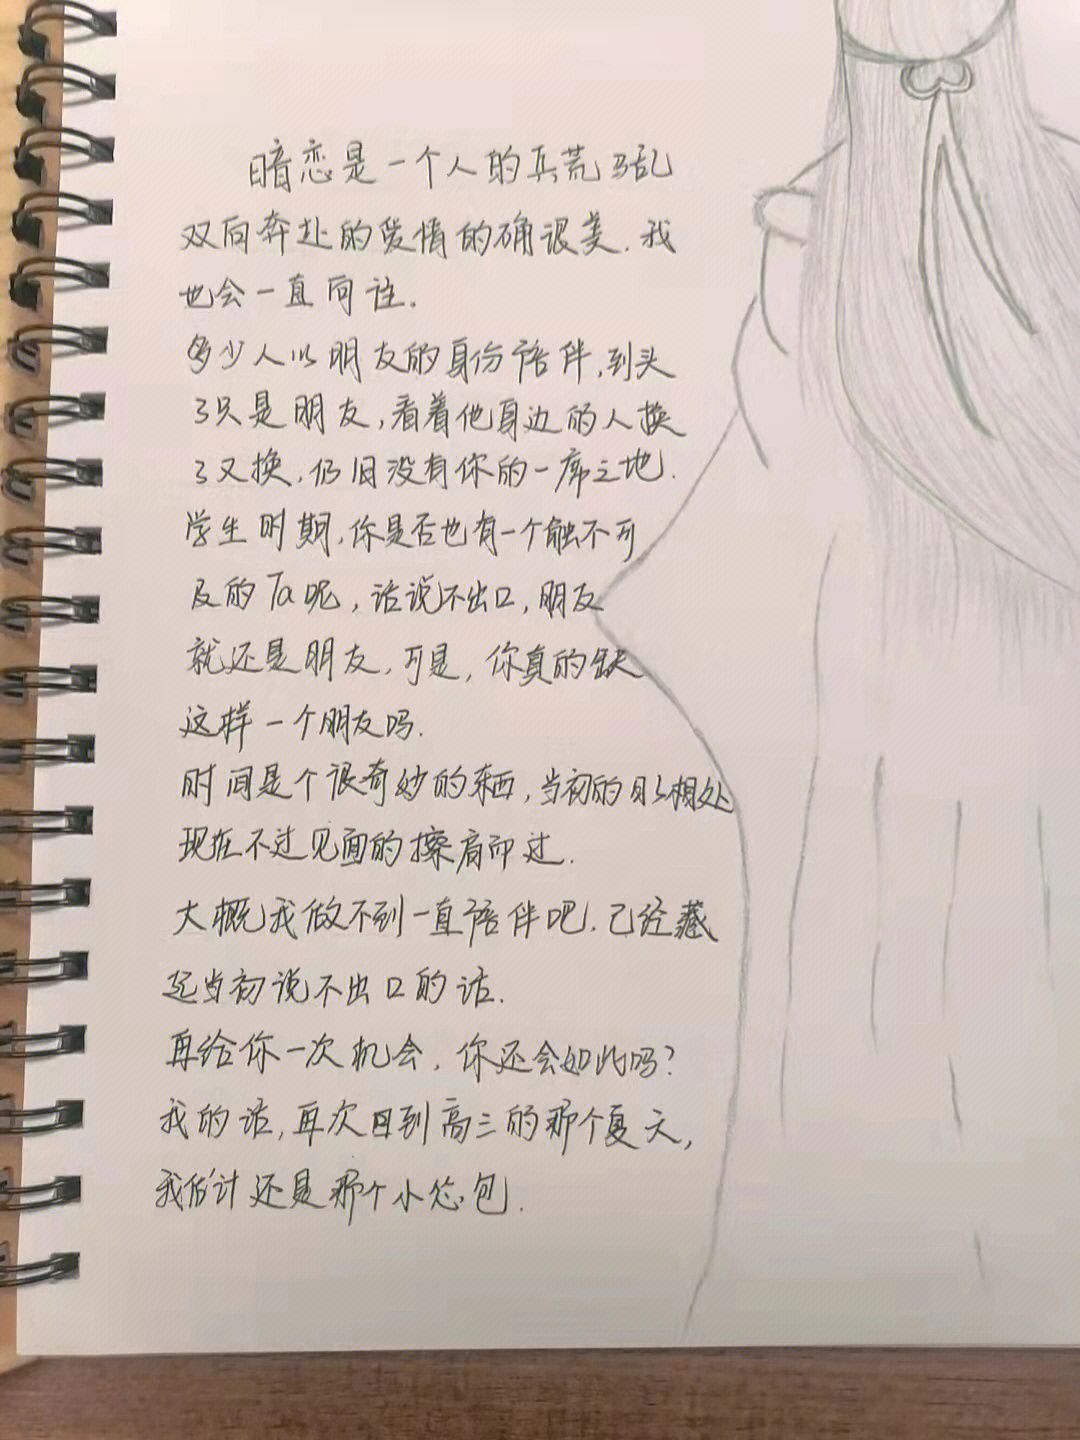 暗恋是一个人的兵荒马乱
双向奔赴的爱情的确很美.我
也会一直向往.
多少人以朋友的身份陪伴,到头
了只是朋友,看着他身边的人换
了又换,仍旧没有你的一席之地.
学生时期,你是否也有一个触不可
及的Ta呢,话说不出口,朋友
就还是朋友,可是,你真的缺
这样一个朋友吗.
时间是个很奇妙的东西,当初的日久相处
现在不过见面的擦肩而过.
大概我做不到一直陪伴吧.已经藏
起当初说不出口的话.
再给你一次机会,你还会如此吗?
我的话,再次回到高三的那个夏天,
我估计还是那个小怂包.